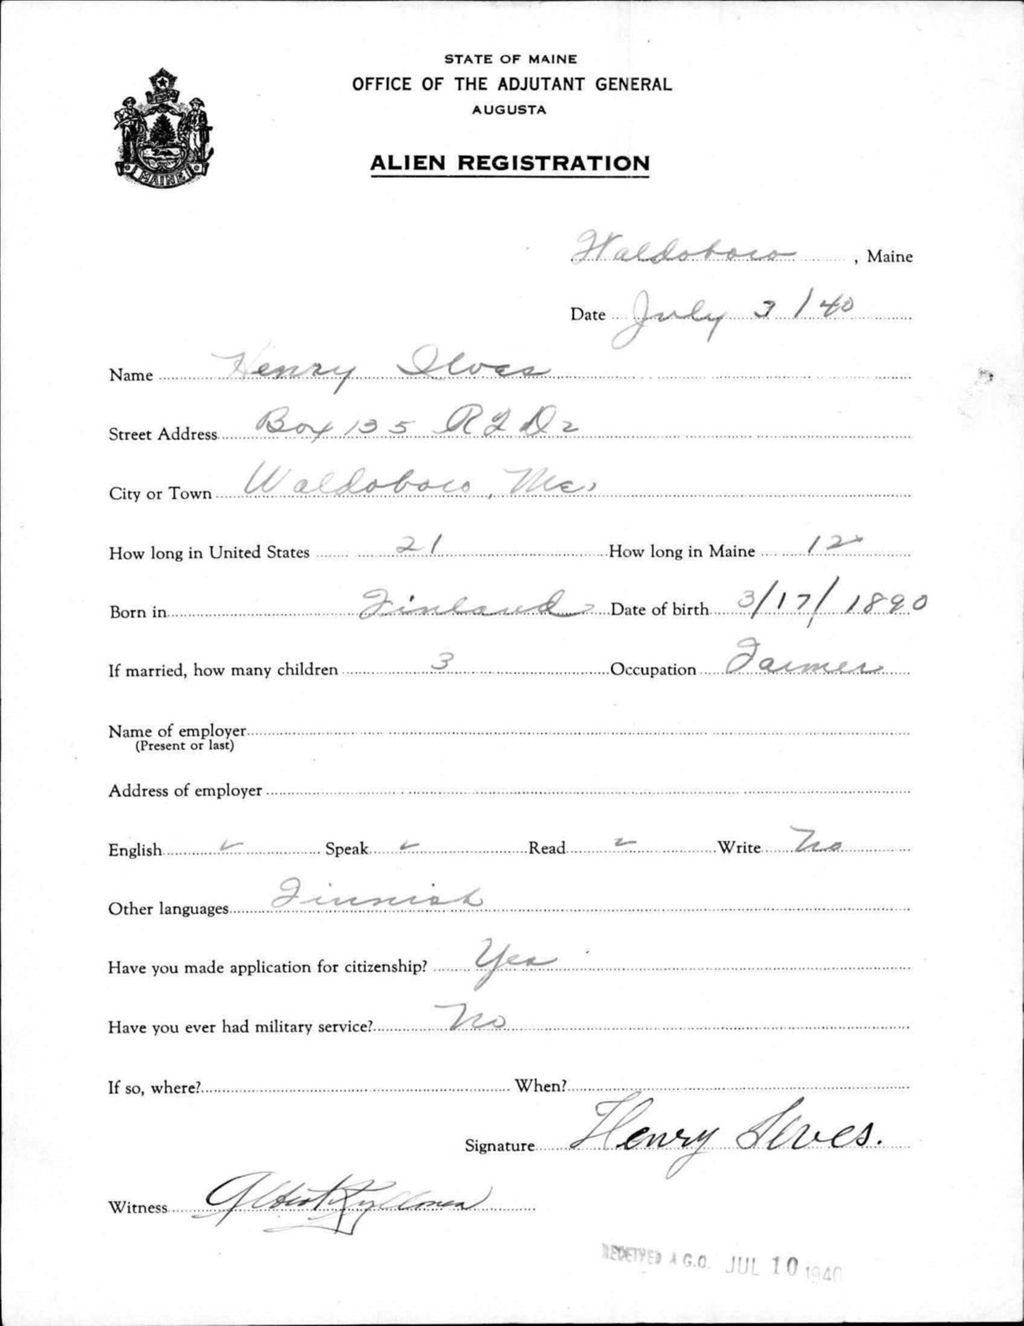 STATE OF MAINE
OFFICE OF THE ADJUTANT GENERAL
AUGUSTA
ALIEN REGISTRATION
MAINE
Waldoboro, Maine
Date July 3/40
Name Henry Ilves
Street Address Box 135 R F D 2
City or Town Waldoboro, Me.
How long in United States 21 How long in Maine 12
Born in Finland Date of birth 3/17/1890
If married, how many children 3 Occupation Farmer
Name of employer
(Present or last)
Address of employer
English ✓ Speak ✓ Read ✓ Write No
Other languages Finnish
Have you made application for citizenship? Yes
Have you ever had military service? No
If so, where? When?
Signature Henry Ilves.
Witness Albert
RECEIVED A.G.O. JUL 10 1940